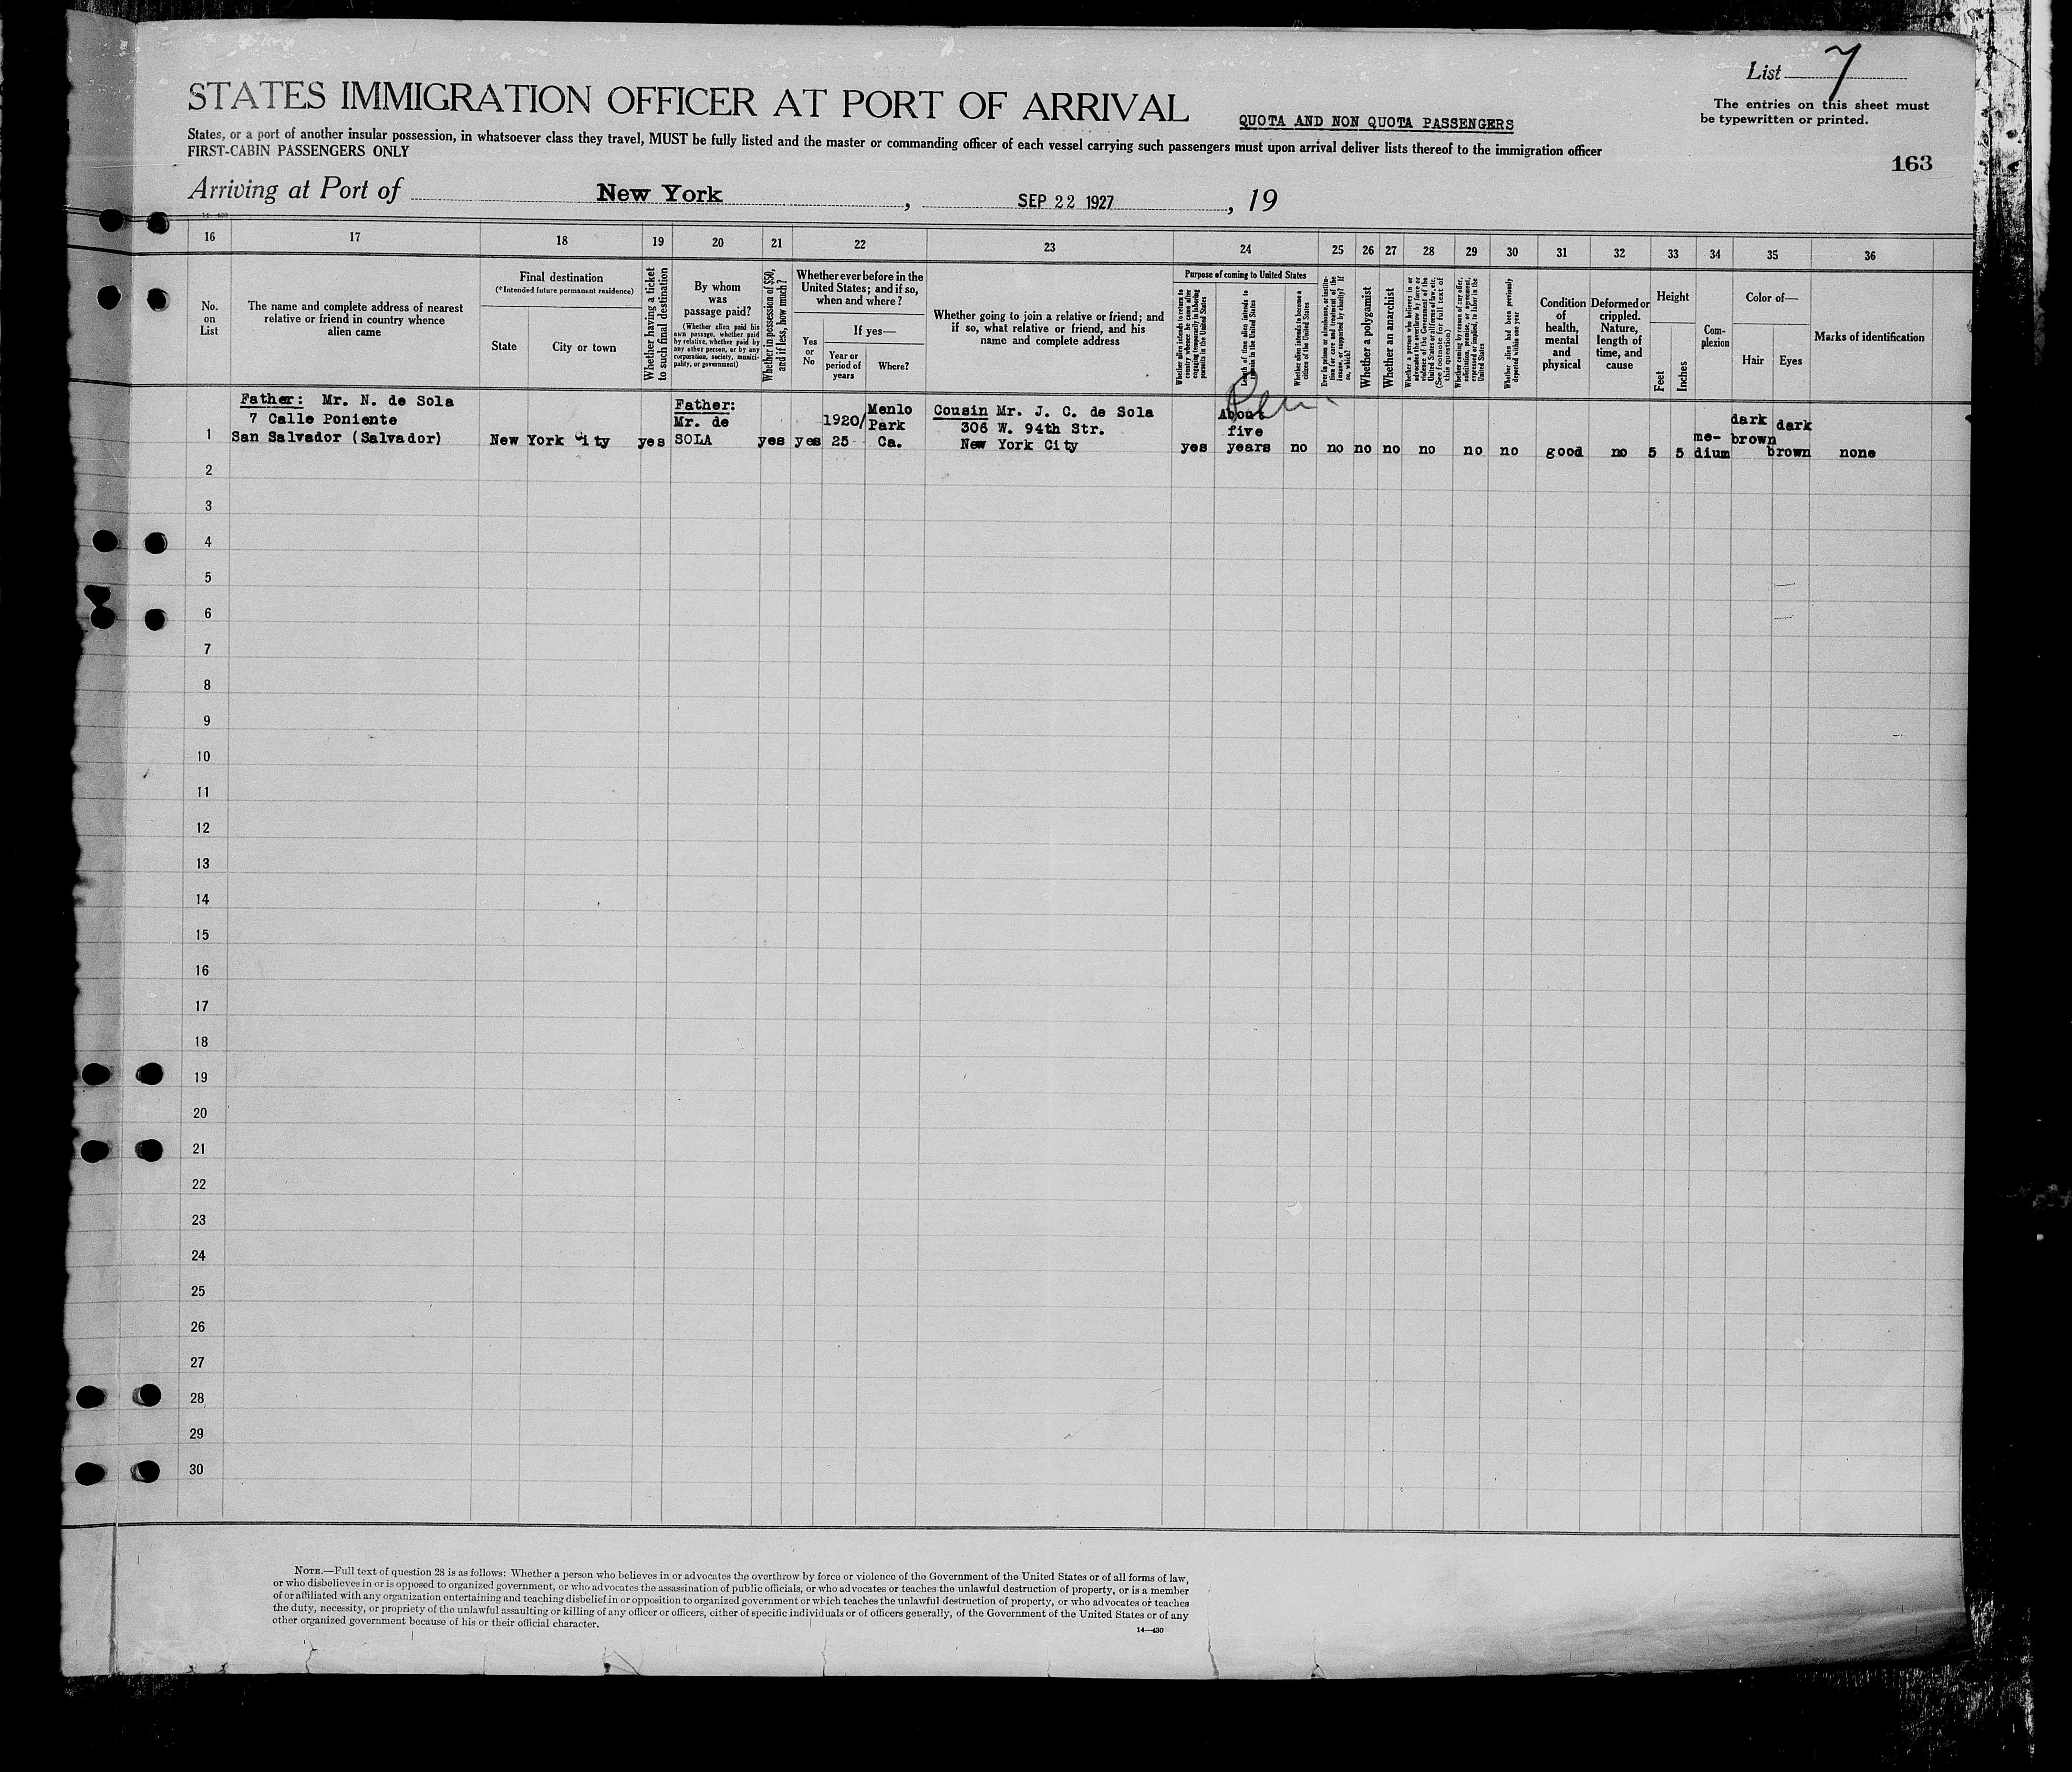 List 7
The entries on this sheet must
be typewritten or printed.
STATES IMMIGRATION OFFICER AT PORT OF ARRIVAL
QUOTA AND NON QUOTA PASSENGERS
States, or a port of another insular possession, in whatsoever class they travel, MUST be fully listed and the master or commanding officer of each vessel carrying such passengers must upon arrival deliver lists thereof to the immigration officer
FIRST-CABIN PASSENGERS ONLY
163
Arriving at Port of New York, SEP 22 1927, 19
14-430
16 17 18 19 20 21 22 23 24 25 26 27 28 29 30 31 32 33 34 35 36
No.
on
List
The name and complete address of nearest
relative or friend in country whence
alien came
Final destination
(*Intended future permanent residence)
State
City or town
Whether having a ticket
to such final destination
By whom
was
passage paid?
(Whether alien paid his
own passage, whether paid
by relative, whether paid by
any other person, or by any
corporation, society, munici-
pality, or government)
Whether in possession of $50,
and if less, how much?
Whether ever before in the
United States; and if so,
when and where?
Yes
or
No
If yes—
Year or
period of
years
Where?
Whether going to join a relative or friend; and
if so, what relative or friend, and his
name and complete address
Purpose of coming to United States
Whether alien intends to return to
country whence he came after
engaging temporarily in laboring
pursuits in the United States
Length of time alien intends to
remain in the United States
Whether alien intends to become a
citizen of the United States
Ever in prison or almshouse, or institu-
tion for care and treatment of the
insane, or supported by charity? If
so, which?
Whether a polygamist
Whether an anarchist
Whether a person who believes in or
advocates the overthrow by force or
violence of the Government of the
United States or all forms of law, etc.
(See footnote for full text of
this question)
Whether coming by reason of any offer,
solicitation, promise, or agreement,
expressed or implied, to labor in the
United States
Whether alien had been previously
deported within one year
Condition
of
health,
mental
and
physical
Deformed or
crippled.
Nature,
length of
time, and
cause
Height
Feet
Inches
Com-
plexion
Color of—
Hair
Eyes
Marks of identification
1
Father: Mr. N. de Sola
7 Calle Poniente
San Salvador (Salvador)
New York City
yes
Father:
Mr. de
SOLA
yes
yes
1920/
25
Menlo
Park
Ca.
Cousin Mr. J. C. de Sola
306 W. 94th Str.
New York City
yes
About
five
years
no
no
no
no
no
no
no
good
no
5
5
me-
dium
dark
brown
dark
brown
none
2
3
4
5
6
7
8
9
10
11
12
13
14
15
16
17
18
19
20
21
22
23
24
25
26
27
28
29
30
NOTE.—Full text of question 28 is as follows: Whether a person who believes in or advocates the overthrow by force or violence of the Government of the United States or of all forms of law,
or who disbelieves in or is opposed to organized government, or who advocates the assassination of public officials, or who advocates or teaches the unlawful destruction of property, or is a member
of or affiliated with any organization entertaining and teaching disbelief in or opposition to organized government or which teaches the unlawful destruction of property, or who advocates or teaches
the duty, necessity, or propriety of the unlawful assaulting or killing of any officer or officers, either of specific individuals or of officers generally, of the Government of the United States or of any
other organized government because of his or their official character.
14—430